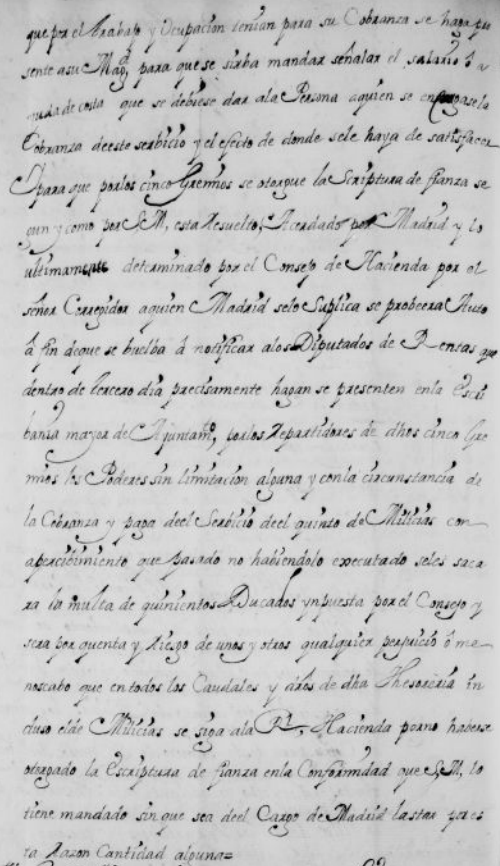 que por el trabajo y Ocupacion tenian para su Cobranza se haga pre
sente a su Magd. para que se sirba mandar señalar el salario ô a
iuda de costa que se debiese dar a la Persona a quien se encargase la
Cobranza de este serbicio y el efecto de donde se le haya de satisfacer
Y para que por los cinco Gremios se otorgue la Scriptura de fianza se
gun y como por S.M. esta Resuelto, Acordado por Madrid y lo
ultimamente determinado por el Consejo de Hacienda por el
señor Corregidor a quien Madrid selo Suplica se probeera Auto
â fin de que se buelba â notificar alos Diputados de Rentas que
dentro de tercero dia precisamente hagan se presenten en la Escri
bania mayor de Ayuntamto. por los Repartidores de dhos cinco Gre
mios los Poderes sin limitacion alguna y con la circunstancia de
la Cobranza y paga deel Serbicio deel quinto de Milicias con
apercibimiento que pasado no habiendolo executado seles saca
ra la multa de quinientos Ducados ynpuesta por el Consejo y
sera por quenta y Riesgo de unos y otros qualquier perjuicio ô me
noscabo que en todos los Caudales y de dha Thesoreria in
cluso el de Milicias se siga a la Rl. Hacienda por no haberse
otorgado la Escriptura de fianza en la Conformidad que S.M. lo
tiene mandado sin que sea deel Cargo de Madrid lastar por es
ta Razon Cantidad alguna=